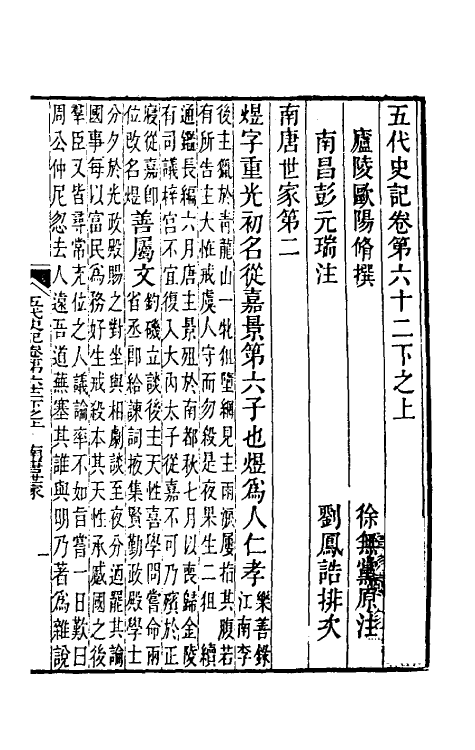 五代史記卷第六十二下之上
廬陵歐陽脩撰 徐無黨原注
南昌彭元瑞注 劉鳳誥排次
南唐世家第二
煜字重光初名從嘉景第六子也煜爲人仁孝 樂善錄
江南李
後主獵於青龍山一牝狙墮網見主雨淚屢指其腹若
有所告主大怪戒虞人守而勿殺是夜果生二狙 續
通鑑長編六月唐主景殂於南都秋七月以喪歸金陵
有司議梓宮不宜復入大內太子從嘉不可乃殯於正
寢從嘉即
位改名煜
善屬文
釣磯立談後主天性喜學問嘗命兩
省丞郎給諫詞掖集賢勤政殿學士
分夕於光政殿賜之對坐與相劇談至夜分迺罷其論
國事每以富民爲務好生戒殺本其天性承蹙國之後
羣臣又皆尋常充位之人議論率不如旨嘗一日歎曰
周公仲尼忽去人遠吾道蕪塞其誰與明乃著爲雜說
五代史記卷第六十二下之上 南唐世家 一